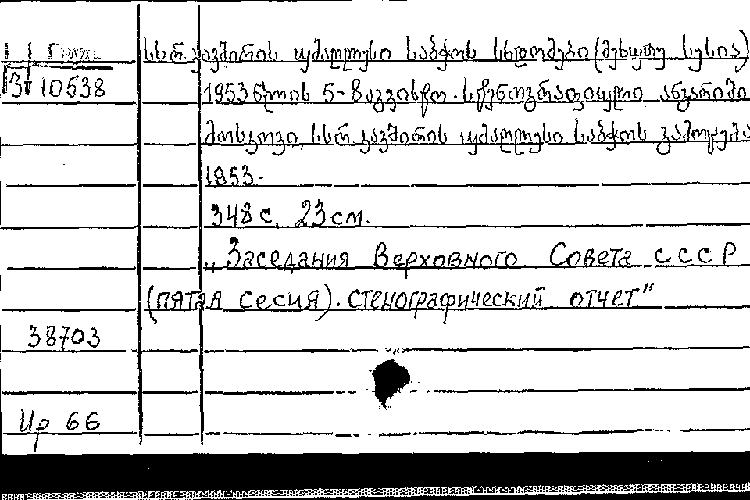 სსრ კავშირის უმაღლესი საბჭოს სხდომები (მეხუთე სესია)
პ 10538
1953 წლის 5-8 აგვისტო. სტენოგრაფიული ანგარიში
მოსკოვი, სსრ კავშირის უმაღლესი საბჭოს გამოცემა
1953.
348 с. 23 см.
„Заседания Верховного Совета СССР
(пятая сесия). стенографический отчет"
38703
Ир 66